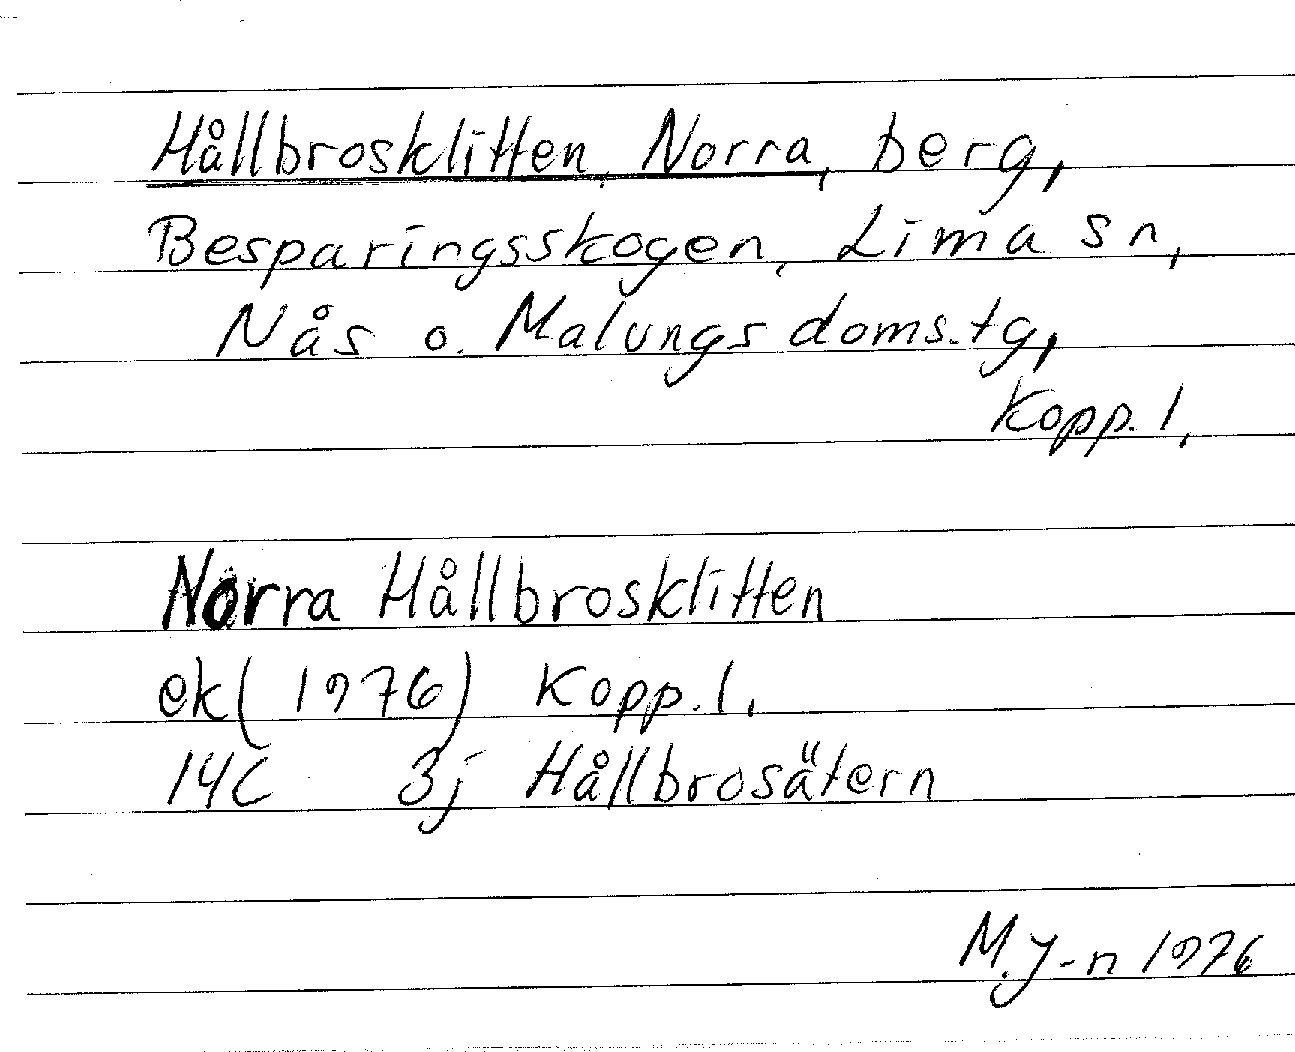 Hållbrosklitten, Norra, berg,
Besparingsskogen, Lima sn,
Nås o. Malungs doms.tg,
Kopp. l.
Norra Hållbrosklitten
ek (1976) Kopp. l.
14C 3j Hållbrosätern
M. J-n 1976